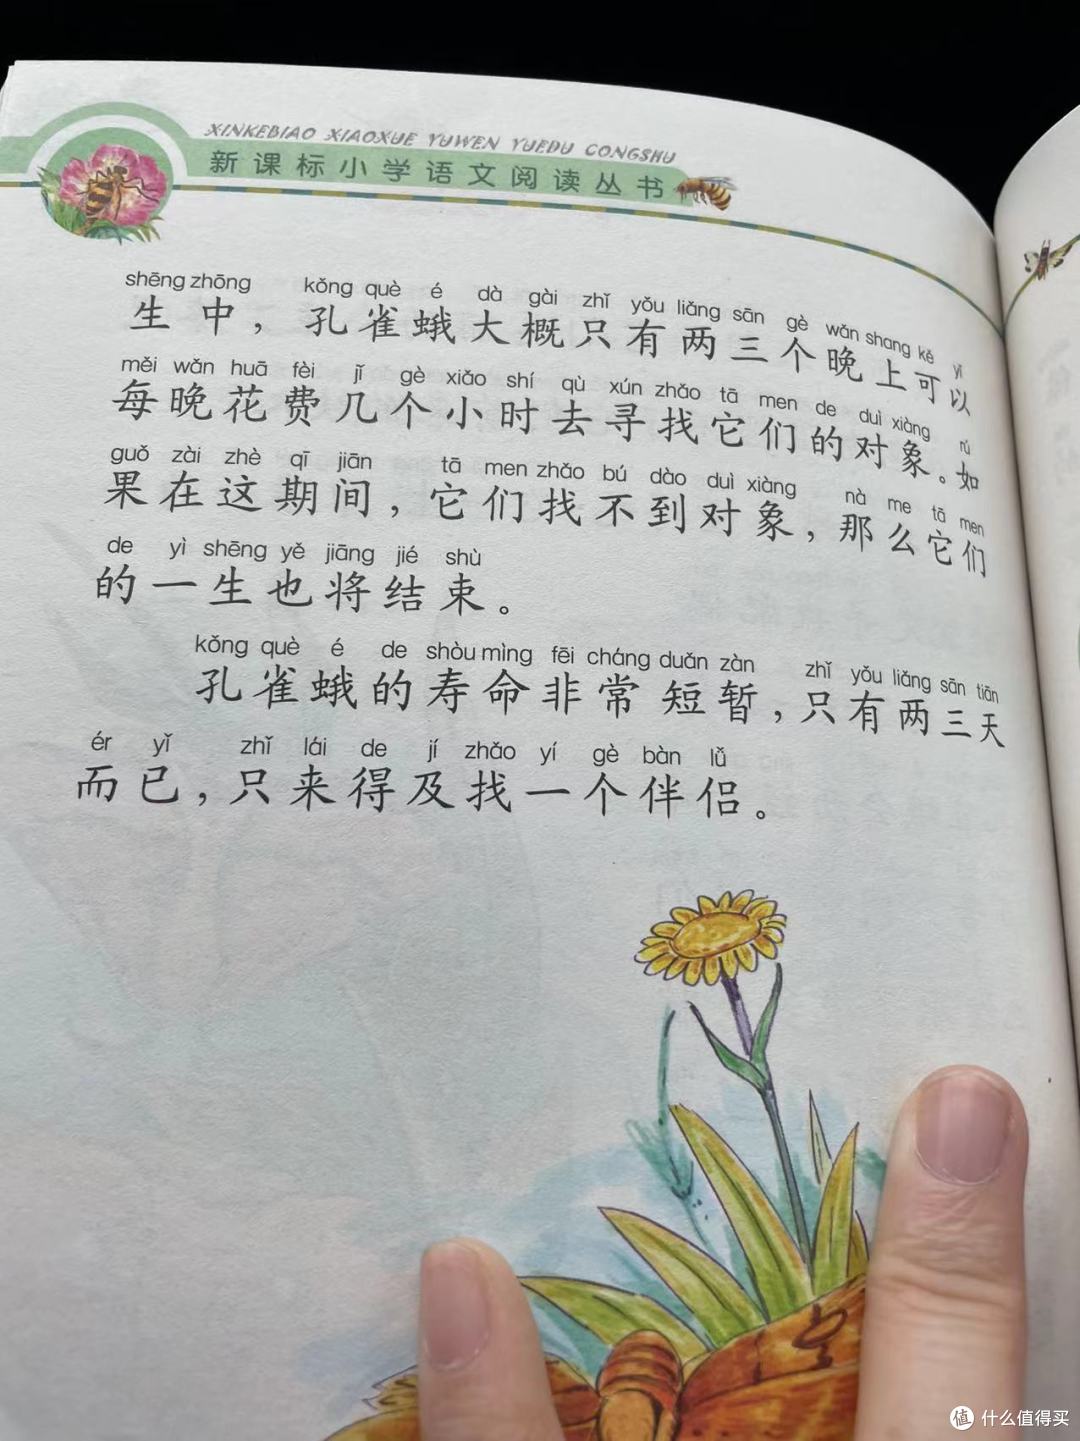 XINKEBIAO XIAOXUE YUWEN YUEDU CONGSHU
新课标小学语文阅读丛书
shēng zhōng kǒng què é dà gài zhǐ yǒu liǎng sān gè wǎn shang kě yǐ
生中，孔雀蛾大概只有两三个晚上可以
měi wǎn huā fèi jǐ gè xiǎo shí qù xún zhǎo tā men de duì xiàng rú
每晚花费几个小时去寻找它们的对象。如
guǒ zài zhè qī jiān tā men zhǎo bú dào duì xiàng nà me tā men
果在这期间，它们找不到对象，那么它们
de yì shēng yě jiāng jié shù
的一生也将结束。
kǒng què é de shòu mìng fēi cháng duǎn zàn zhǐ yǒu liǎng sān tiān
孔雀蛾的寿命非常短暂，只有两三天
ér yǐ zhǐ lái de jí zhǎo yí gè bàn lǚ
而已，只来得及找一个伴侣。
值 什么值得买